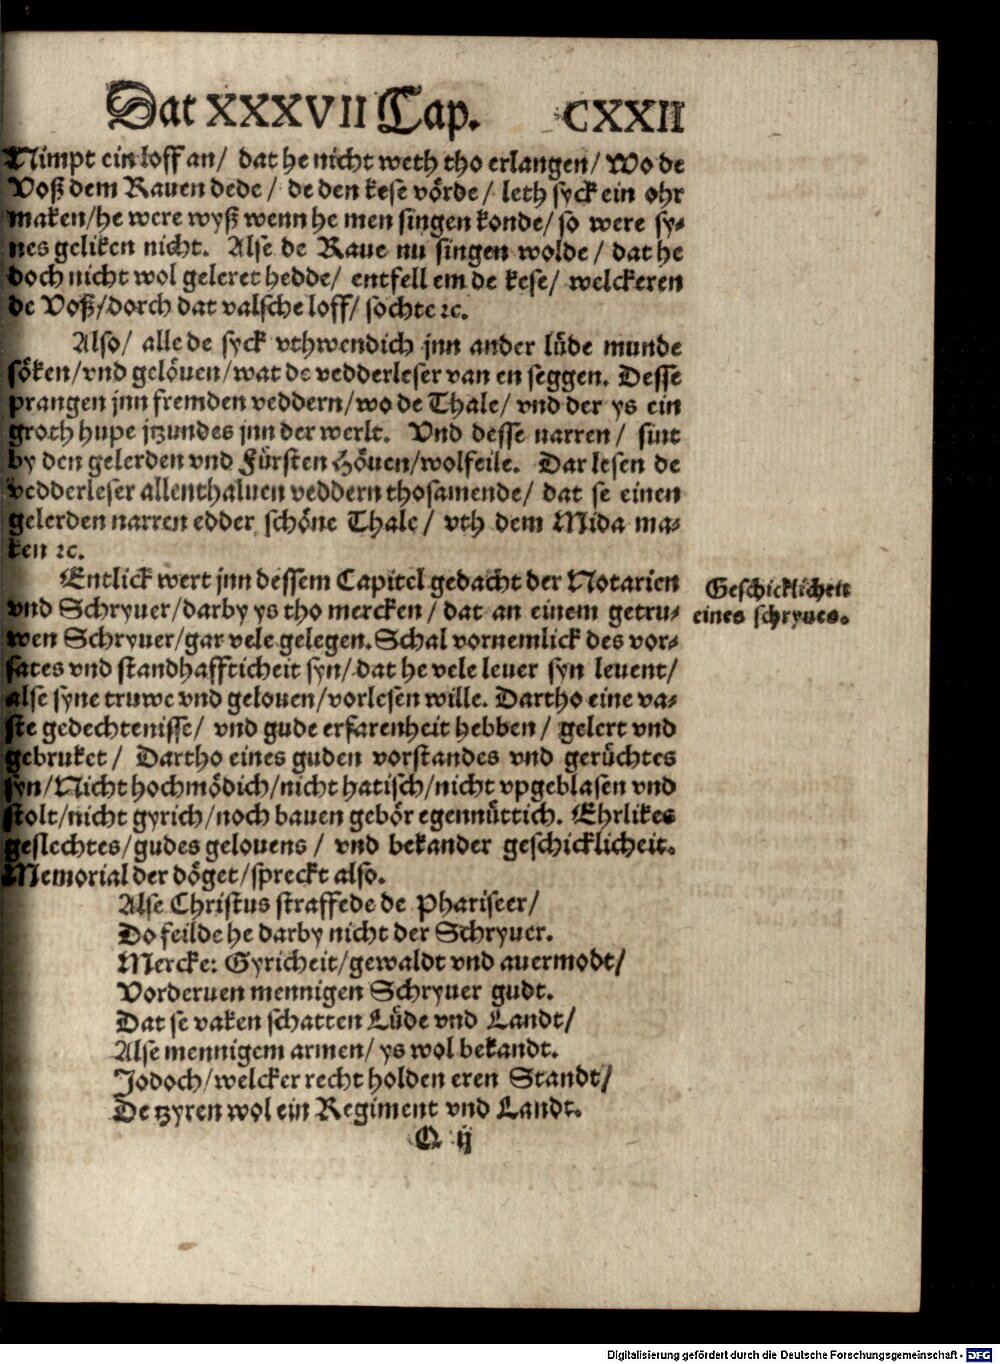 Dat XXXVII Cap. CXXII
Nimpt ein loff an/ dat he nicht weth tho erlangen/ Wo de
Voß dem Rauen dede/ de den kese vörde/ leth syck ein ohr
maken/he were wyß wenn he men singen konde/ so were sy⸗
nes geliken nicht. Alse de Raue nu singen wolde/ dat he
doch nicht wol geleret hedde/ entfell em de kese/ welckeren
de Voß/dorch dat valsche loff/ sochte ⁊c.
Also/ alle de syck vthwendich jnn ander lüde munde
söken/vnd gelöuen/wat de vedderleser van en seggen. Desse
prangen jnn fremden veddern/wo de Thale/ vnd der ys ein
groth hupe jtzundes jnn der werlt. Vnd desse narren/ sint
by den gelerden vnd Fürsten Höuen/wolfeile. Dar lesen de
vedderleser allenthaluen veddern thosamende/ dat se einen
gelerden narren edder schöne Thale/ vth dem Mida ma⸗
ken ⁊c.
Entlick wert jnn dessem Capitel gedacht der Notarien
vnd Schryuer/darby ys tho mercken/ dat an einem getru⸗
wen Schryuer/gar vele gelegen. Schal vornemlick des vor⸗
sates vnd standhaffticheit syn/ dat he vele leuer syn leuent/
alse syne truwe vnd gelouen/vorlesen wille. Dartho eine va⸗
ste gedechtenisse/ vnd gude erfarenheit hebben/ gelert vnd
gebruket/ Dartho eines guden vorstandes vnd gerüchtes
syn/Nicht hochmödich/nicht hatisch/nicht vpgeblasen vnd
stolt/nicht gyrich/noch bauen gebör egennüttich. Ehrlikes
geslechtes/gudes gelouens/ vnd bekander geschicklicheit.
Memorial der döget/spreckt also.
Geschicklicheit
eines schryues.
Alse Christus straffede de Phariseer/
Do feilde he darby nicht der Schryuer.
Mercke: Gyricheit/gewaldt vnd auermodt/
Vorderuen mennigen Schryuer gudt.
Dat se vaken schatten Lüde vnd Landt/
Alse mennigem armen/ ys wol bekandt.
Jodoch/welcker recht holden eren Standt/
De tzyren wol ein Regiment vnd Landt.
Q ij
Digitalisierung gefördert durch die Deutsche Forschungsgemeinschaft - DFG